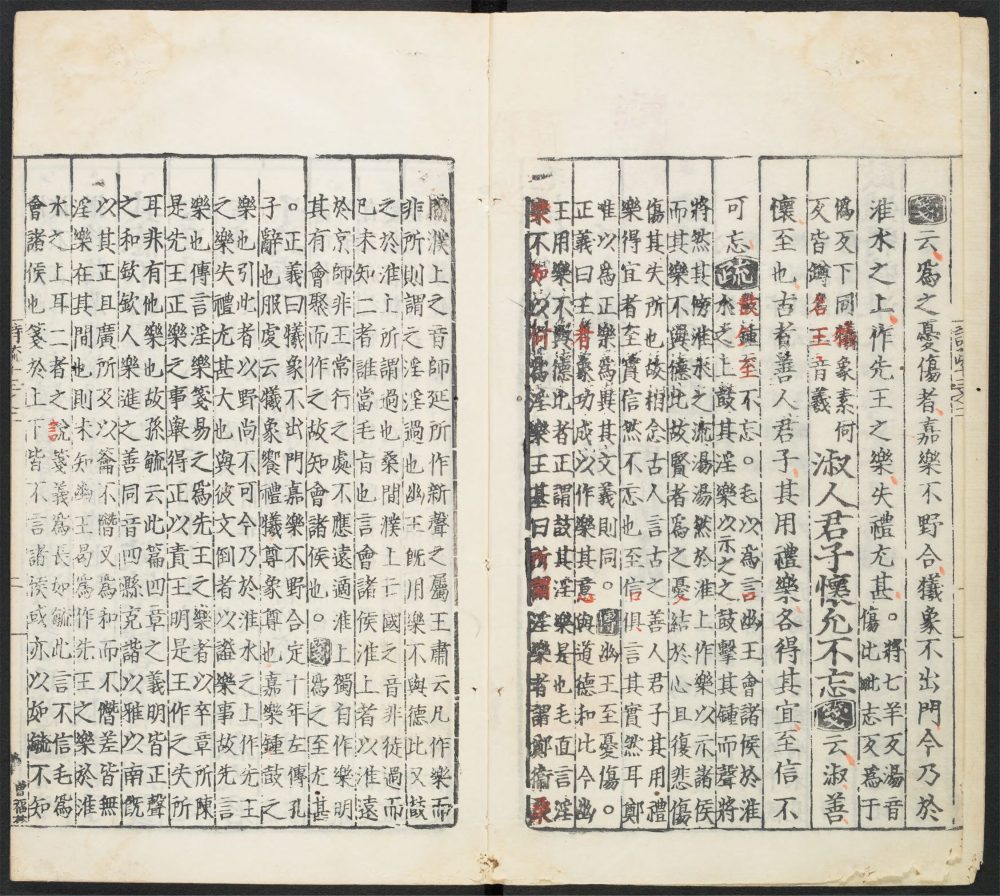 箋云爲之憂傷者嘉樂不野合犧象不出門今乃於
淮水之上作先王之樂失禮尤甚。將七羊反湯音傷比毗志反爲于
僞反下同犧象素何反皆罇名王音羲淑人君子懷允不忘箋云淑善
懷至也古者善人君子其用禮樂各得其宜至信不
可忘疏鼓鍾至不忘。毛以爲言幽王會諸侯於淮水之上鼓其淫樂以示之之鼓擊其鍾而聲將
將然其傍淮水之流湯湯然於淮上作樂以示諸侯
而其樂不與德比故賢者爲之憂結於心且復悲傷
傷其失所也故相念古人言古之善人君子其用禮
樂得宜者至實信然不忘也至信俱言其實然耳鄭
唯以爲正樂爲異其文義則同。傳幽王至憂傷。
正義曰王者象功成以作樂其意與道德和比今幽
王用樂不與德比者正謂鼓其淫樂是也毛直言淫
樂不知以何爲淫樂王基曰所謂淫樂者謂鄭衛桑
間濮上之音師延所作新聲之屬王肅云凡作樂而
非所則謂之淫淫過也幽王旣用樂不與德比又鼓
之於淮上所謂過也桑間濮上亡國之音非徒過而
已未知二者誰當毛旨也言會諸侯淮上者以淮遠
於京師非王常行之處不應遠適淮上獨有作樂明
其有會聚而作之故知會諸侯也。箋爲之至尤甚
。正義曰犧象不出門嘉樂不野合定十年左傳孔
子辭也服虔云犧象饗禮犧尊象尊也嘉樂鍾鼓之
樂也引此者以野尚不可今乃於淮水之上作先王
之樂失禮尤其大也與彼文倒者以證樂事故先言
樂也傳言淫樂箋易之爲先王之樂者以卒章所陳
是先王正樂之事舉得正以責王明是王作之失所
耳非有他樂也故孫毓云此篇四章之義明皆正聲
之和欽欽人樂進之善同音四縣克諧以雅以南旣
以其正且廣所及以籥不僭又爲和而不僭差皆無
淫樂在其間也則未知幽王曷爲作先王之樂於淮
水之上耳二者之說箋義爲長如毓此言不信毛爲
會諸侯也箋於上下皆不言諸侯或亦以如毓不知
詩疏十三之二
曹福林